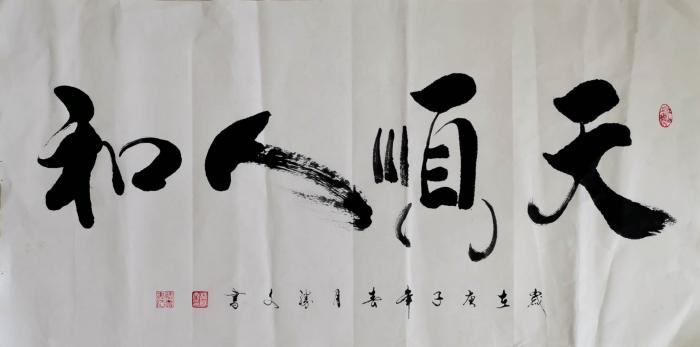 天順人和
歲在庚子年春月勝文書